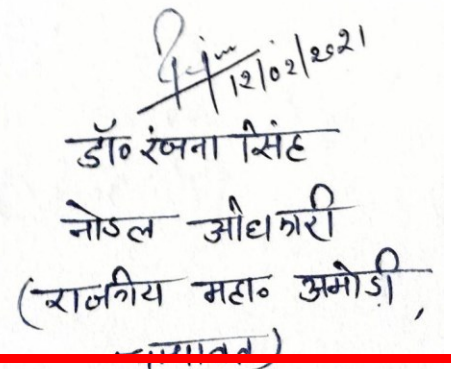 12/02/2021
डॉ० रंजना सिंह
नोडल अधिकारी
(राजकीय महा० अमोड़ी,